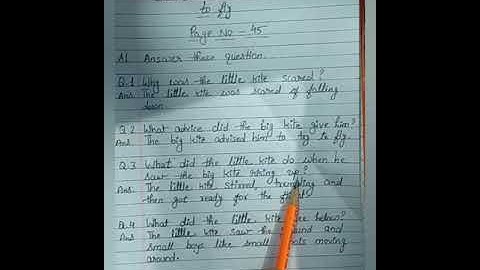 to fly
Page No - 45
A1 Answer these question.
Q.1 Why was the little kite scared?
Ans. The little kite was scared of falling
down
Q.2 What advice did the big kite give him?
Ans. The big kite advised him to try to fly.
Q.3 What did the little kite do when he
saw the big kite rising up?
Ans. The little kite stirred, trembling and
then got ready for the
Q.4 What did the little kite see below?
Ans The little kite saw the and
small boys like small moving
around.